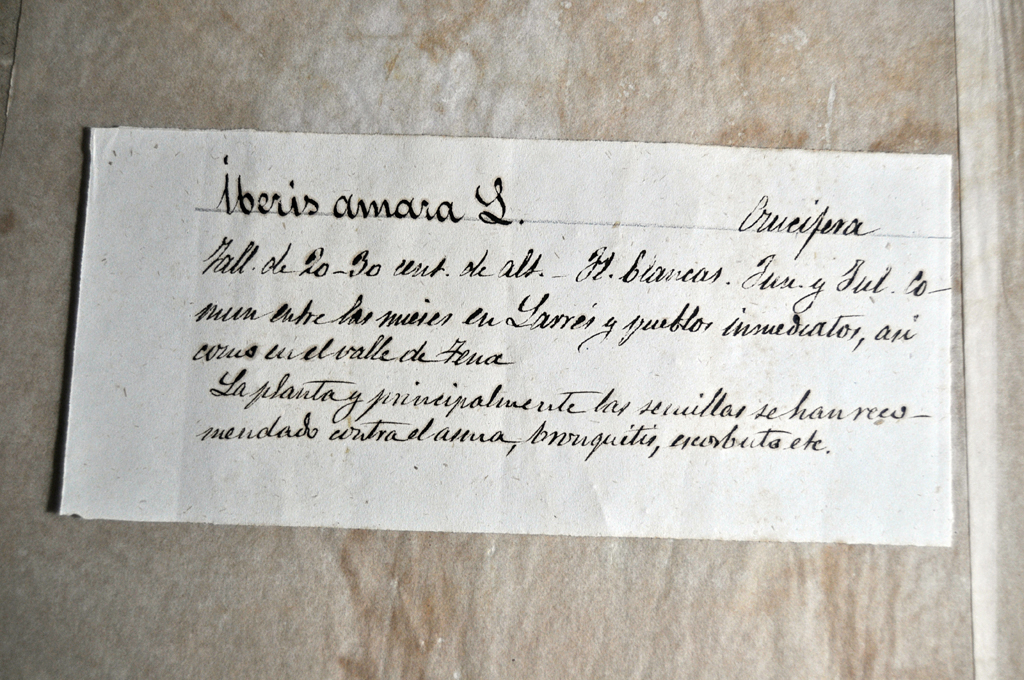 Iberis amara L. Crucifera
Tall. de 20-30 cent. de alt. - Fl. blancas. Jun. y Jul. Co-
mun entre las mieses en Larrés y pueblos inmediatos, asi
como en el valle de Tena
La planta y principalmente las semillas se han reco-
mendado contra el asma, bronquitis, escorbuto etc.